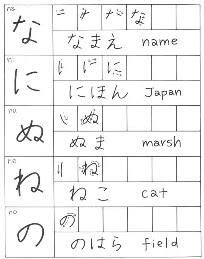 na
な
なまえ name
ni
に
にほん Japan
nu
ぬ
ぬま marsh
ne
ね
ねこ cat
no
の
のはら field